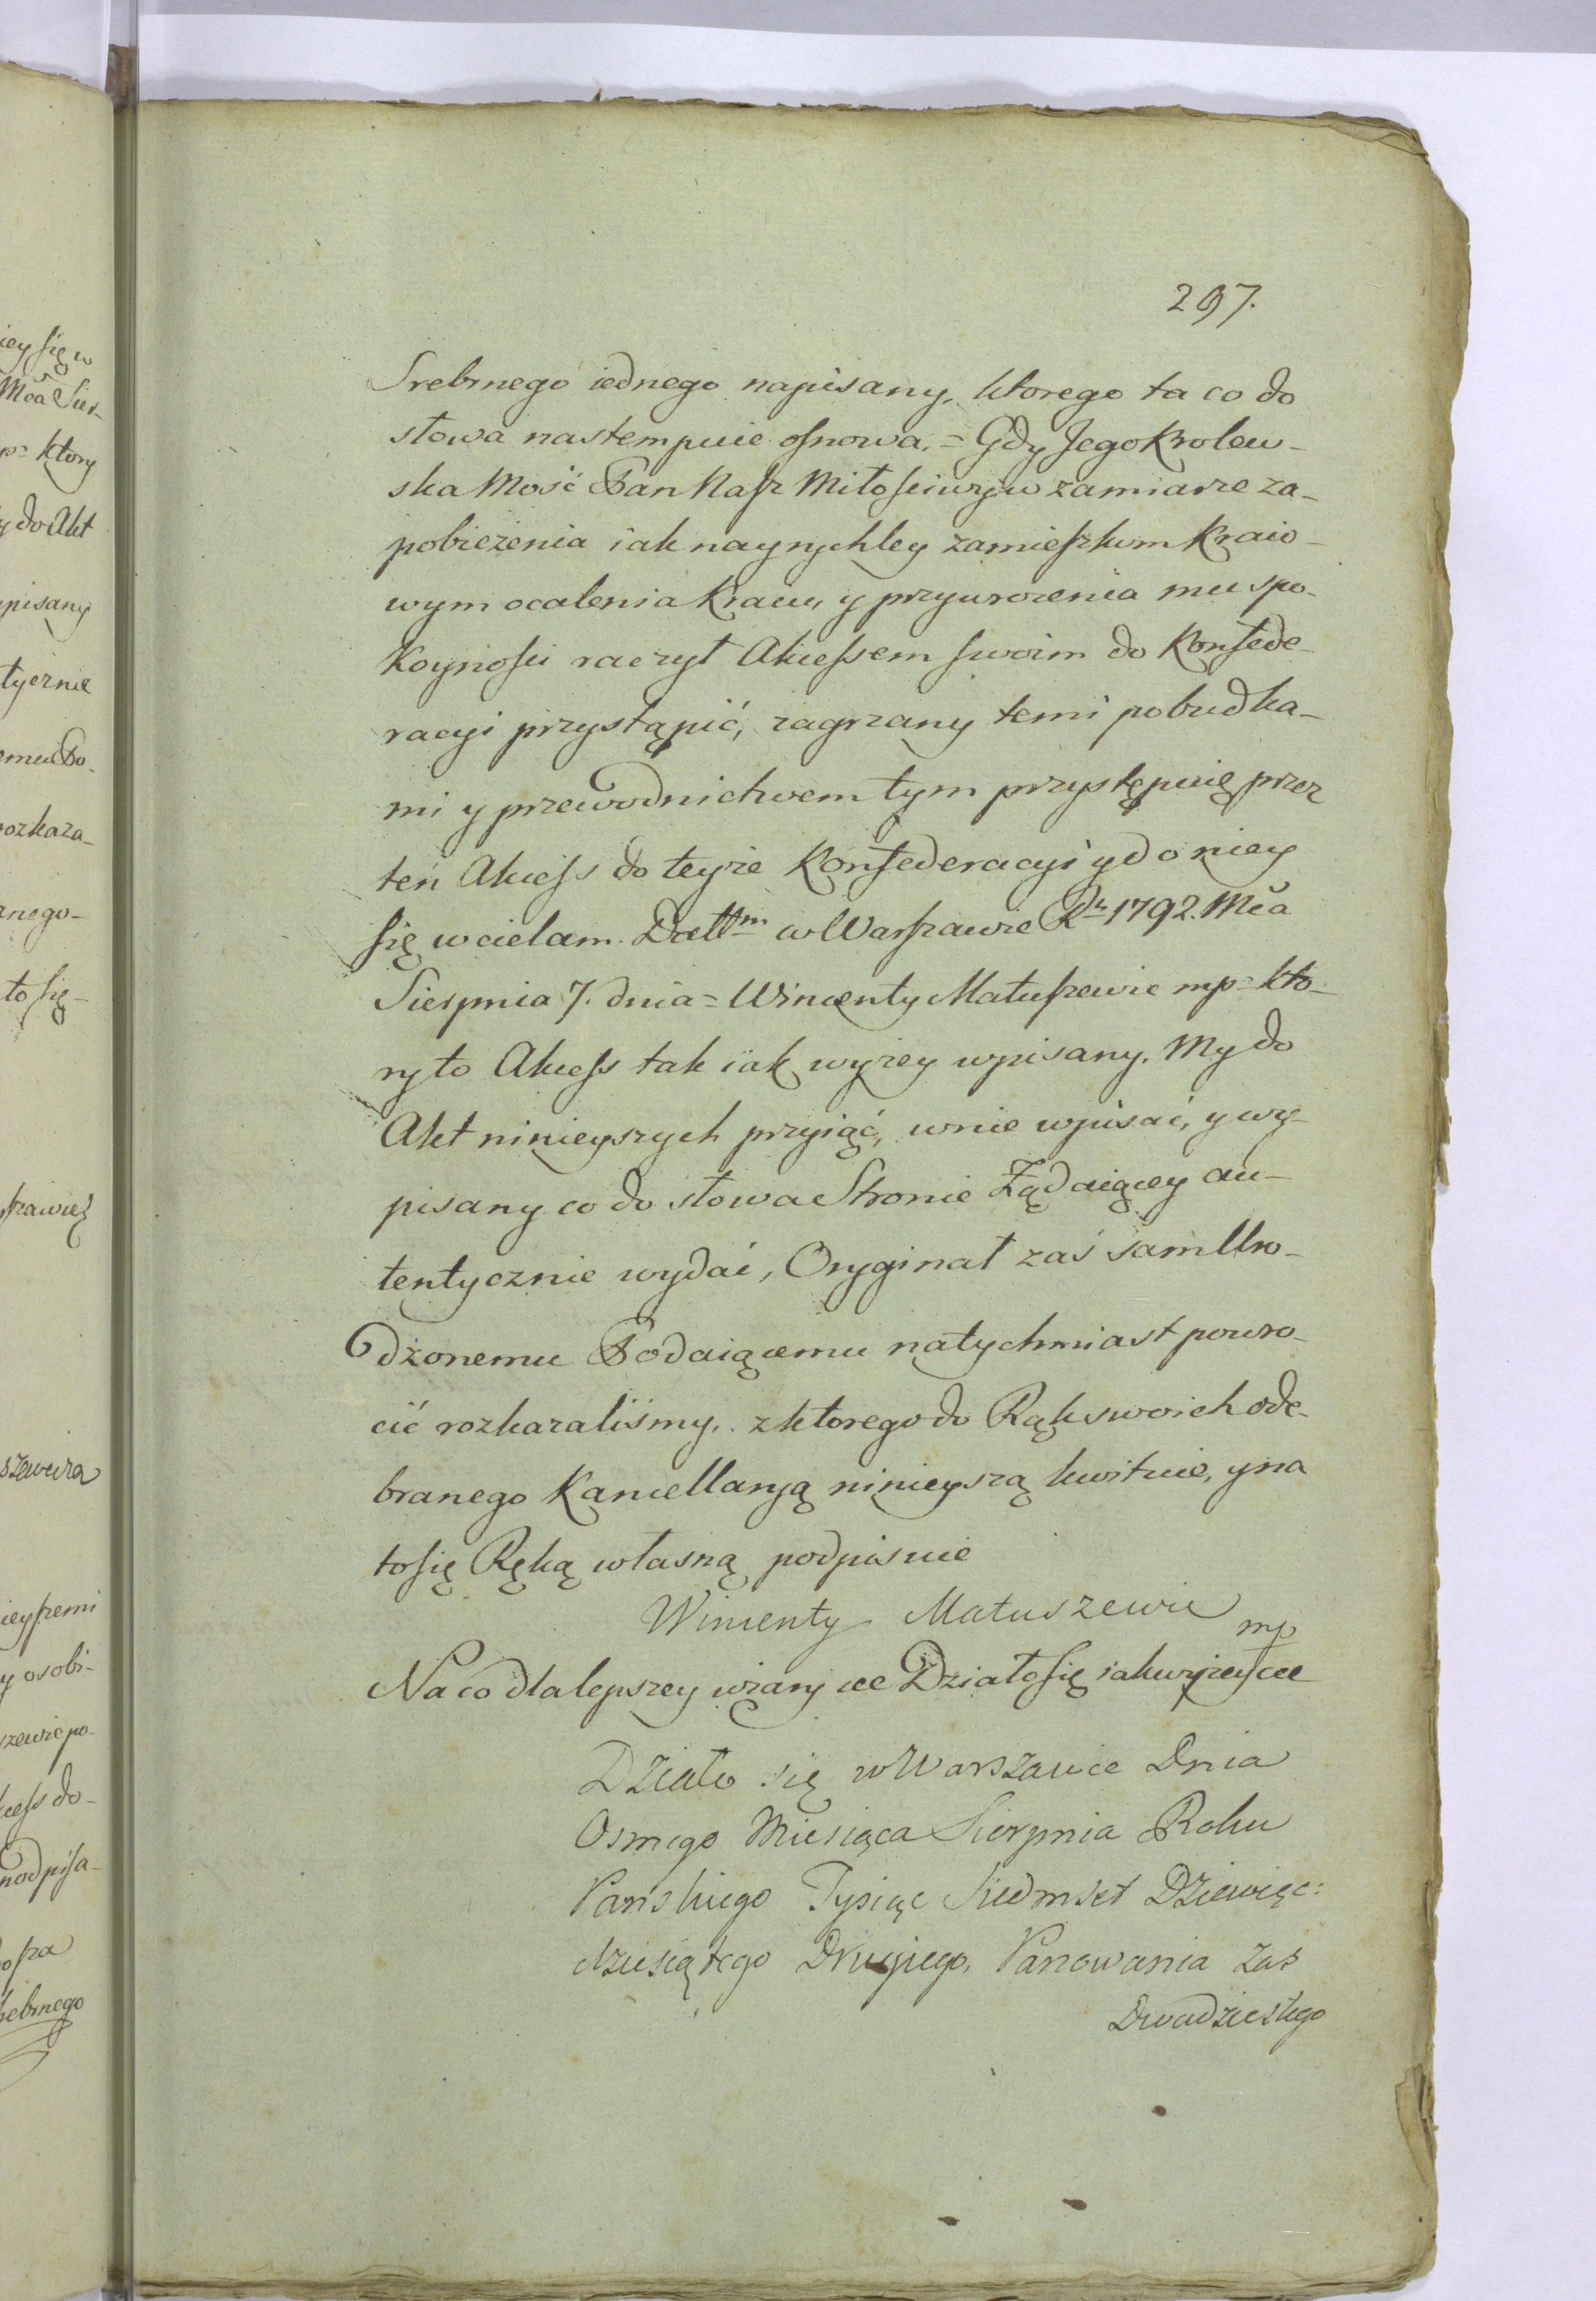 297.
Srebrnego iednego napisany, ktorego ta co do
słowa nastempuie osnowa. = Gdy Jego Krolew-
ska Mość Pan Nasz Miłościwy w zamiarze za-
pobieżenia iak nayrychley zamieszkom kraio-
wym ocalenia Kraiu, y przywrocenia mu spo-
koyności raczył Akcessem swoim do Konfede-
racyi przystąpić, zagrzany temi pobudka-
mi y przewodnictwem tym przystępuię przez
ten Akcess do teyże Konfederacyi y do niey
się wcielam. Dattm w Warszawie Ru 1792. Mca
Sierpnia 7. dnia = Wincenty Matuszewic mp = kto-
ry to Akcess tak iak wyżey wpisany. My do
Akt ninieyszych przyiąć, w nie wpisać, y wy-
pisany co do słowa Stronie Żądaiącey au-
tentycznie wydać, Oryginał zaś sam Uro-
dzonemu Podaiącemu natychmiast powro-
cić rozkazaliśmy, z ktorego do Rąk swoich ode-
branego Kancellaryą ninieyszą kwituie, y na
to się Ręką własną podpisuie
Wincenty Matuszewic mp
Na co dla lepszey wiary etc Działo się iak wyżey etc
Działo się w Warszawie Dnia
Osmego Miesiąca Sierpnia Roku
Pańskiego Tysiąc Siedmset Dziewięć:
dziesiątego Drugiego, Panowania zaś
Dwudziestego